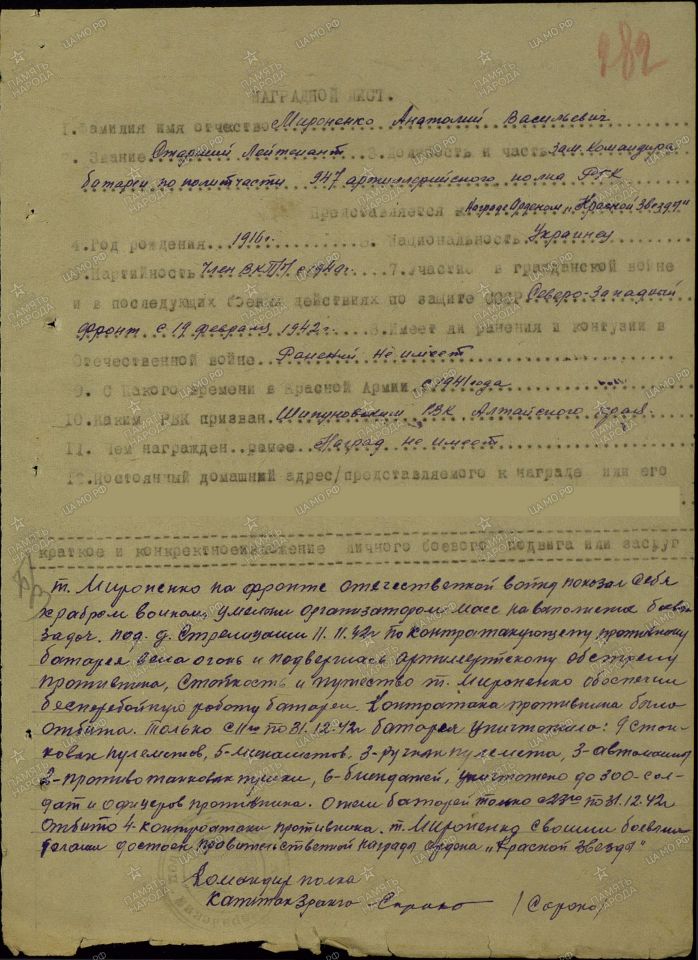 282
НАГРАДНОЙ ЛИСТ.
1.Фамилия имя отчество Мироненко Анатолий Васильевич
2. Звание Старший Лейтенант 3.Должность и часть Зам. командира
батареи по политчасти 947 артиллерийского полка РГК
Представляется к Награде Орденом „Красной Звезды"
4.Год рождения 1916 г. 5. Национальность Украинец
6.Партийность Член ВКП/б с 1940г. 7.Участие в гражданской войне
и в последующих боевых действиях по защите СССР Северо-Западный
Фронт с 19 февраля 1942г. 8.Имеет ли ранения и контузии в
Отечественной войне Ранений не имеет
9. С Какого времени в Красной Армии с 1941 года
10.Каким РВК призван Шипуновским РВК Алтайского края
11. Чем награжден ранее Наград не имеет
12.Постоянный домашний адрес/представляемого к награде или его
краткое и конкретное изложение личного боевого подвига или заслуг
т. Мироненко на фронте отечественной войны показал себя
храбрым воином, умелым организатором масс на выполнение боевых
задач. под д. Стрелицами 11.11.42г по контратакующему противнику
батарея вела огонь и подверглась артиллерийскому обстрелу
противника, Стойкость и мужество т. Мироненко обеспечили
бесперебойную работу батареи. Контратака противника была
отбита. Только с по 31.12.42г батарея уничтожила: 9 стан-
ковых пулеметов, 5-минометов, 3-ручных пулемета, 3-автомашины
2-противотанковых пушки, 6-блендажей, уничтожено до 300-сол-
дат и офицеров противника. Огнем батареи только с 23го по 31.12.42г
отбито 4-контратаки противника. т. Мироненко своими боевыми
делами достоен правительственной награды ордена „Красной Звезды"
Командир полка
капитан Сороко /Сороко/